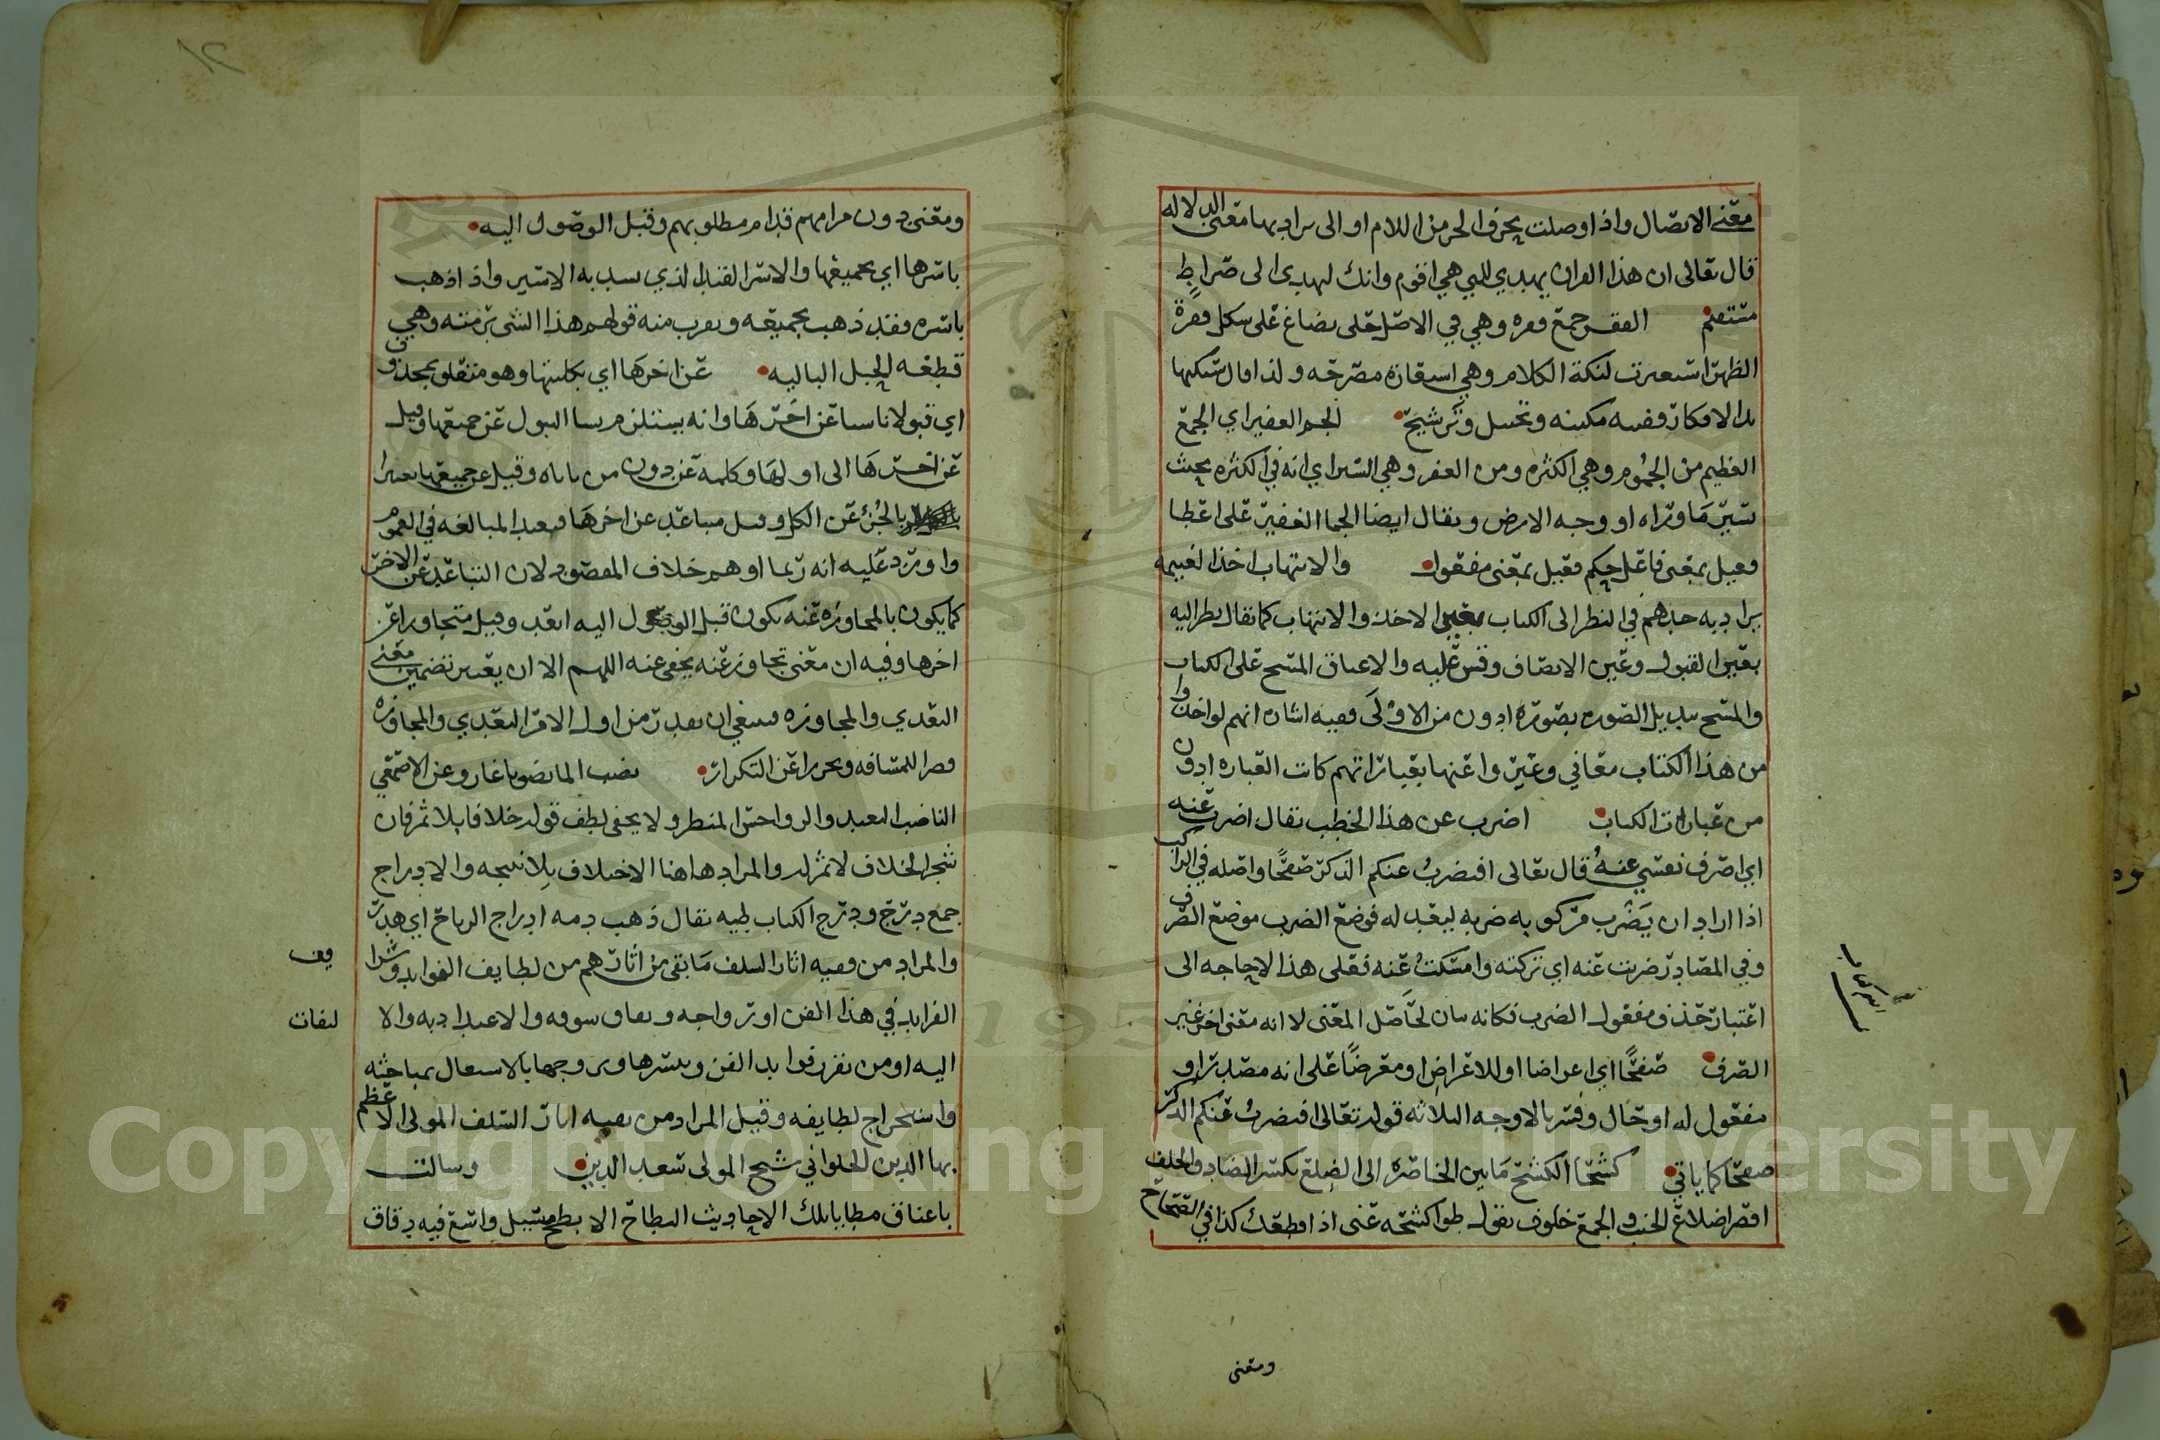 معنى الايصال واذا وصلت بحرف الجر من اللام او الى يراد بها معنى الدلاله
قال تعالى ان هذا القران يهدي للتي هي اقوم وانك لتهدي الى صراط
مستقيم الفقر جمع فقره وهي في الاصل حلي يصاغ على شكل فقرة
الظهر استعيرت لنكتة الكلام وهي استعاره مصرحه ولذا قال سكبها
يد الافكار وفيه مكنيه وتخييل وترشيح الجم الغفير اي الجمع
العظيم من الجموم وهي الكثره ومن الغفر وهي الستر اي انه في الكثره بحيث
يستر ما وراه او وجه الارض ويقال ايضا الجما الغفير على اعطا
فعيل بمعنى فاعل حكم فعيل بمعنى مفعول والانتهاب اخذ الغنيمه
يراد به حدهم في النظر الى الكتاب بعين الاخذ والانتهاب كما يقال نظر اليه
بعين القبول وعين الانصاف وقس عليه والاعناق المسح على الكتاب
والمسخ تبديل الصوره بصورة ادون من الاولى وفيه اشاره انهم لو اخذوا
من هذا الكتاب معاني وعبروا عنها بعباراتهم كانت العباره ادون
من عبارات الكتاب اضرب عن هذا الخطب يقال اضرب عنه
اي اصرف نفسي عنه قال تعالى افنضرب عنكم الذكر صفحا واصله في الراكب
اذا اراد ان يضرب مركوبه ضربه ليعدله فوضع الضرب موضع الصرف
وفي المصادر ضربت عنه اي تركته وامسكت عنه فعلى هذا لا حاجه الى
اعتبار حذف مفعول الضرب فكانه بيان لحاصل المعنى لا انه معنى اخر غير
الصرف صفحا اي اعراضا او للاعراض او معرضا على انه مصدر او
مفعول له او حال وفسر بالاوجه الثلاثه قوله تعالى افنضرب عنكم الذكر
صفحا كما ياتي كشحا الكشح ما بين الخاصره الى الضلع بكسر الضاد والخلف
اقصر اضلاع الجنب والجمع خلوف يقول طوا كشحه عني اذا قطعك كذا في الصحاح
ومعنى
ومعنى دون مرامهم قدام مطلوبهم وقبل الوصول اليه
باسرها اي بجميعها والاسر القد الذي يشد به الاسير واذا ذهب
باسره فقد ذهب بجميعه ويقرب منه قولهم هذا الشي برمته وهي
قطعه الحبل الباليه عن اخرها اي بكليتها وهو متعلق بمحذوف
اي قبولا ناشيا عن اخرها وانه يستلزم القبول عن جميعها وقيل
عن اخرها الى اولها وكلمه عن دون من وقيل عن جميعها تعبيرا
بالجزء عن الكل وقيل متباعد عن اخرها فيفيد المبالغه في العموم
واورد عليه انه ربما اوهم خلاف المقصود لان التباعد عن الاخر
كما يكون بالمجاوزه عنه يكون قبل الوصول اليه ابعد وقيل متجاوزا عن
اخرها وفيه ان معنى تجاوز عنه يخفى عنه اللهم الا ان يعتبر تضمين معنى
التعدي والمجاوزه فينبغي ان يقدر من اول الامر التعدي والمجاوزه
قصرا للمسافه وتحرزا عن التكرار نضب الما نضوبا غار وعن الاصمعي
الناضب البعيد والرواحر المنظر ولا يخفى لطف قوله خلافا بلا ثمر فان
شجر الخلاف لا ثمر له والمراد هاهنا الاختلاف بلا نتيجه والادراج
جمع درج ودرج الكتاب طيه يقال ذهب دمه ادراج الرياح اي هدر
والمراد من بقيه اثار السلف ما بقي من اثارهم من لطايف الفوايد
الفرايد في هذا الفن او رواجه ونفاق سوقه والاعتداد به والا
التفات
اليه او من تفرق فوايد الفن ونشرها وبروجها بالاشتغال بمباحثه
واستخراج لطايفه وقيل المراد من بقيه اثار السلف المولى الاعظم
بها الدين الحلواني شيخ المولى سعد الدين وسالت
باعناق مطايا تلك الاحاديث البطاح الابطح مسيل واسع فيه دقاق